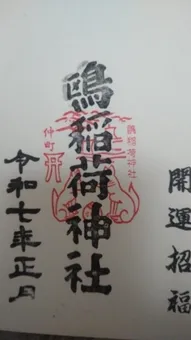 開運招福
鴎稲荷神社
鴎稲荷神社
仲町
令和七年正月